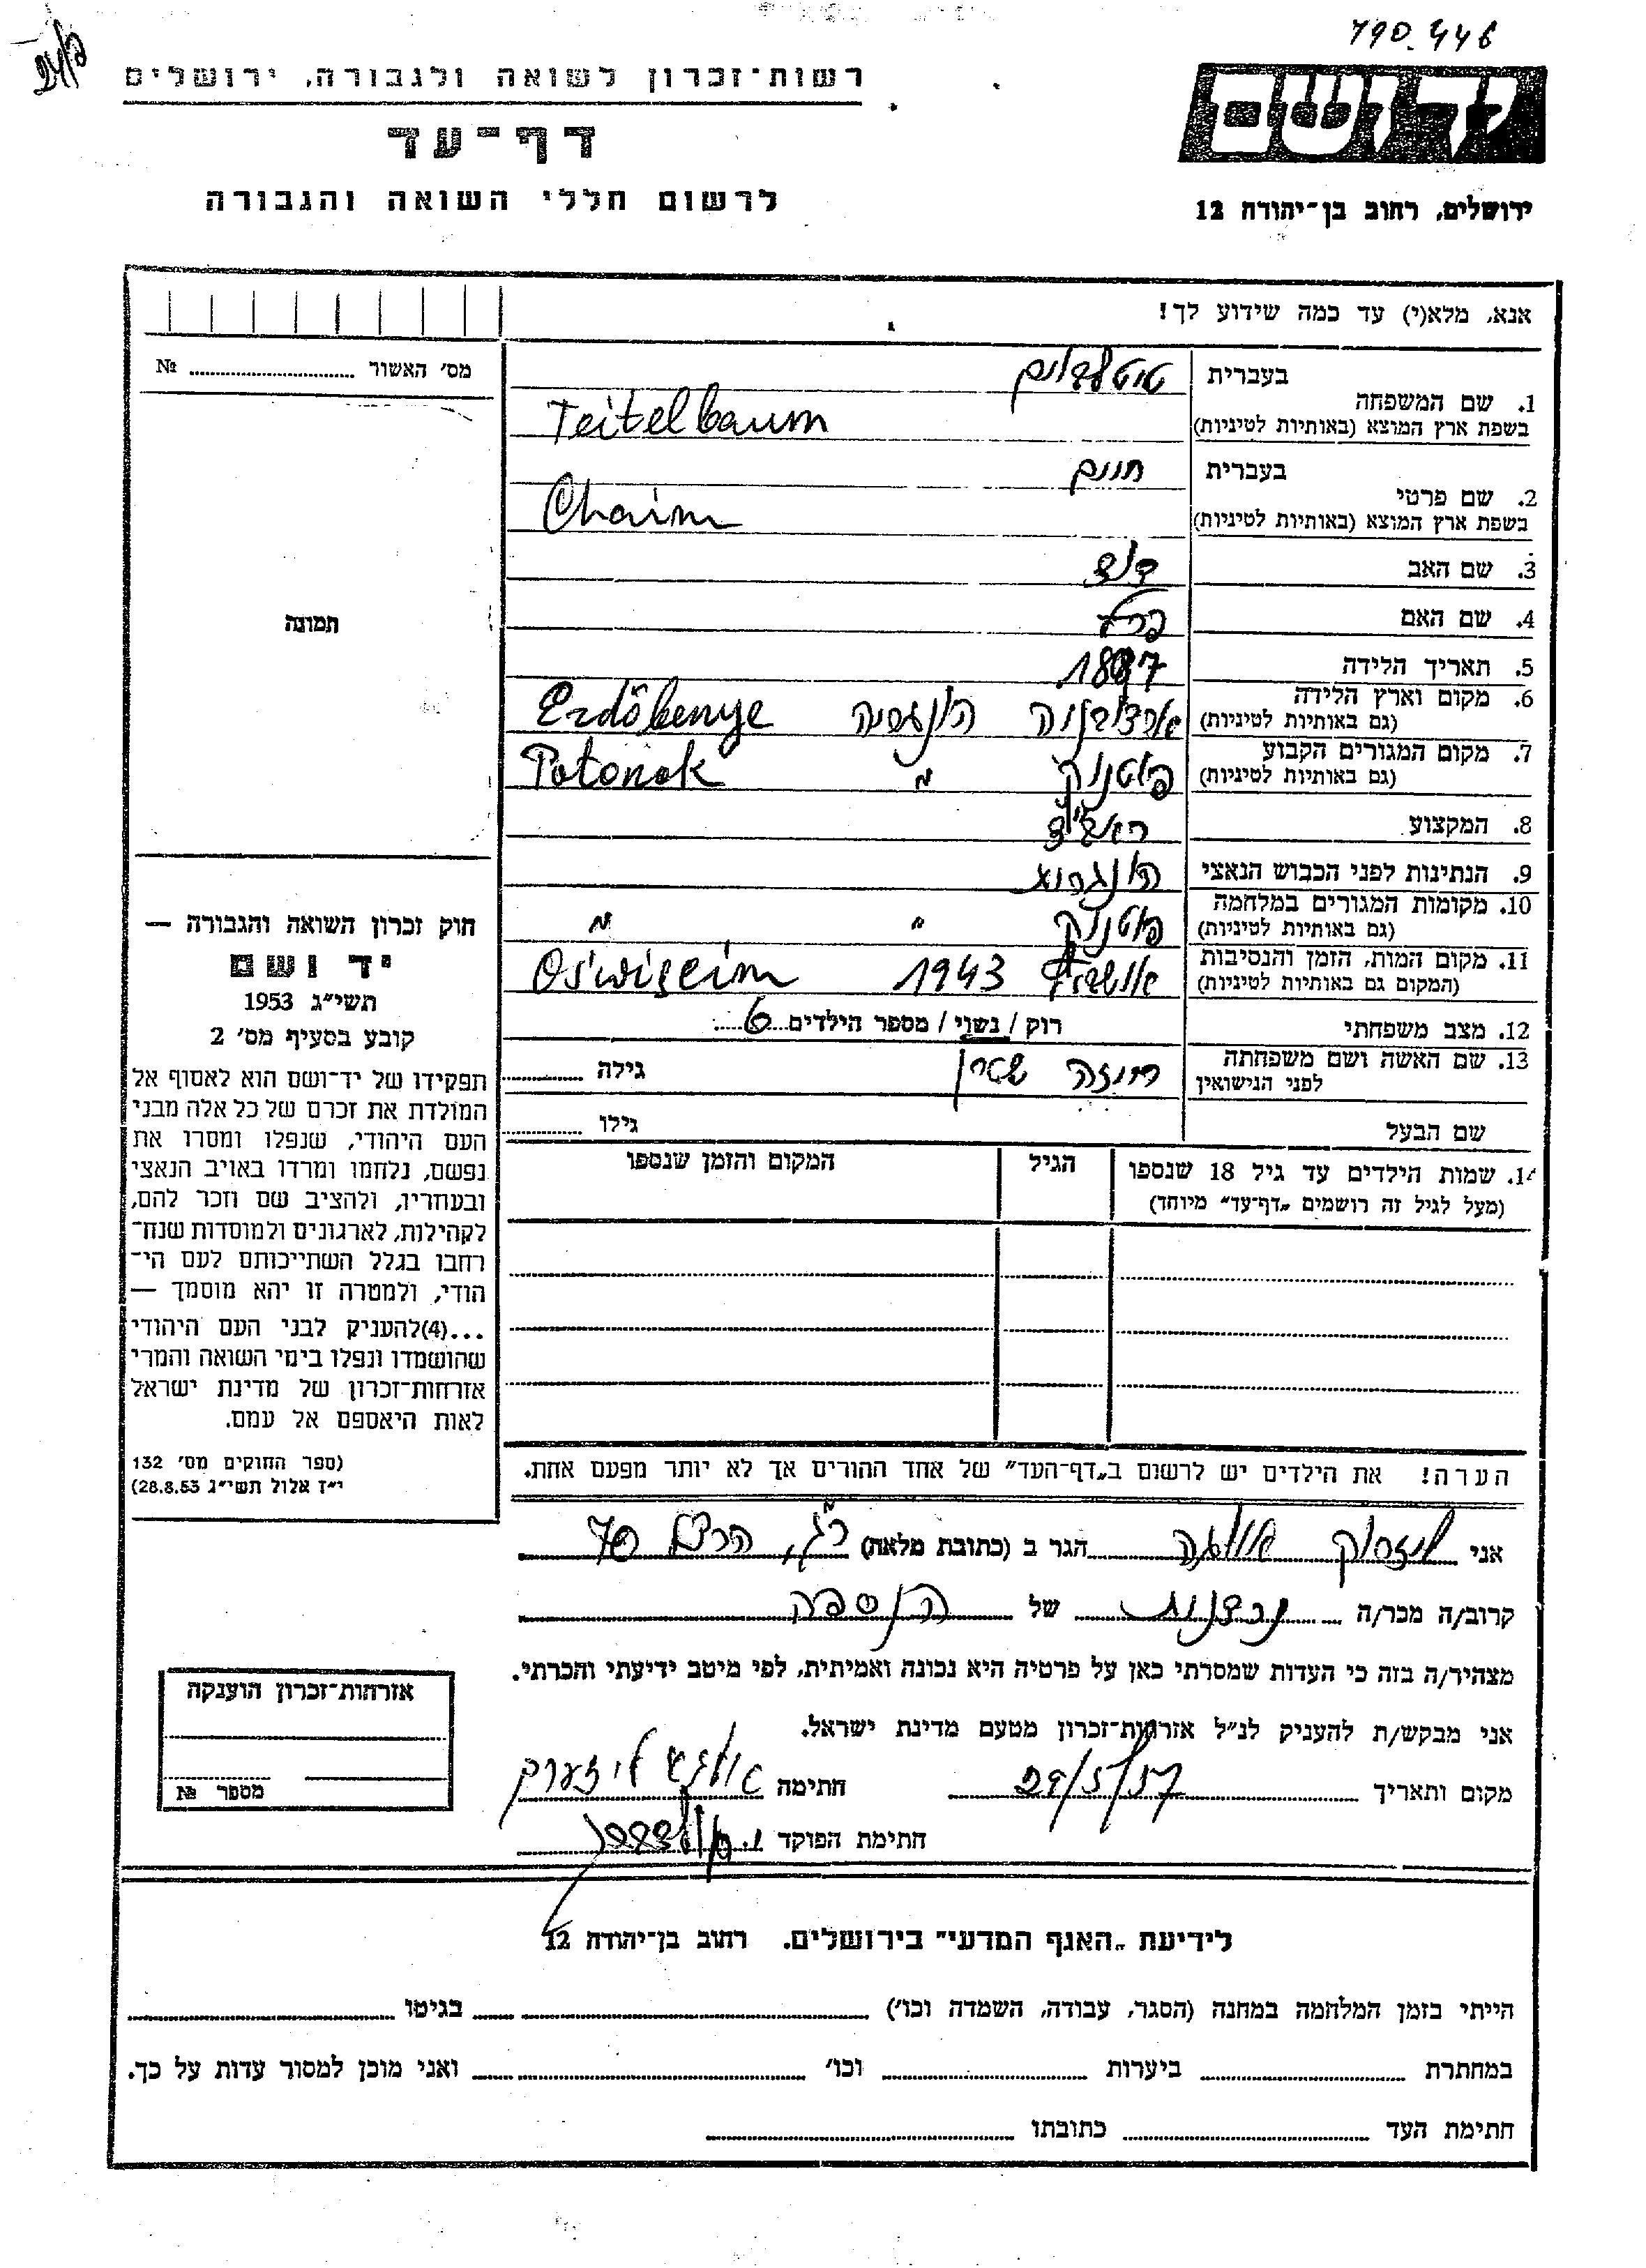 790.446
24/2
רשות־זכרון לשואה ולגבורה, ירושלים
דף־עד
לרשום חללי השואה והגבורה
יד ושם
ירושלים, רחוב בן־יהודה 12
אנא, מלא(י) עד כמה שידוע לך!
מס׳ האשור № ........
תמונה
בעברית טיטלבוים
1. שם המשפחה
בשפת ארץ המוצא (באותיות לטיניות) Teitelbaum
בעברית חיים
2. שם פרטי
בשפת ארץ המוצא (באותיות לטיניות) Chaim
3. שם האב דוד
4. שם האם פרל
5. תאריך הלידה 1887
6. מקום וארץ הלידה
(גם באותיות לטיניות) ארדבניה הונגריה Erdőbenye
7. מקום המגורים הקבוע
(גם באותיות לטיניות) פוטנוק " Potonok
8. המקצוע
9. הנתינות לפני הכבוש הנאצי הונגרית
10. מקומות המגורים במלחמה
(גם באותיות לטיניות) פוטנוק " "
11. מקום המות, הזמן והנסיבות
(המקום גם באותיות לטיניות) אושוויץ 1943 Oświęcim
12. מצב משפחתי רוק / נשוי / מספר הילדים 6
13. שם האשה ושם משפחתה
לפני הנישואין רוזה גילה ........
שם הבעל גילו ........
14. שמות הילדים עד גיל 18 שנספו הגיל המקום והזמן שנספו
(מעל לגיל זה רושמים „דף־עד” מיוחד)
חוק זכרון השואה והגבורה —
יד ושם
תשי״ג 1953
קובע בסעיף מס׳ 2
תפקידו של יד־ושם הוא לאסוף אל
המולדת את זכרם של כל אלה מבני
העם היהודי, שנפלו ומסרו את
נפשם, נלחמו ומרדו באויב הנאצי
ובעוזריו, ולהציב שם וזכר להם,
לקהילות, לארגונים ולמוסדות שנח־
רבו בגלל השתייכותם לעם הי־
הודי, ולמטרה זו יהא מוסמך —
...(4)להעניק לבני העם היהודי
שהושמדו ונפלו בימי השואה והמרי
אזרחות־זכרון של מדינת ישראל
לאות היאספם אל עמם.
(ספר החוקים מס׳ 132
י״ז אלול תשי״ג 28.8.53)
הערה! את הילדים יש לרשום ב„דף־העד” של אחד ההורים אך לא יותר מפעם אחת.
אני אולגה הגר ב (כתובת מלאה) ר״ג,
קרוב/ה מכר/ה של הנספה
מצהיר/ה בזה כי העדות שמסרתי כאן על פרטיה היא נכונה ואמיתית, לפי מיטב ידיעתי והכרתי.
אני מבקש/ת להעניק לנ״ל אזרחות־זכרון מטעם מדינת ישראל.
מקום ותאריך 29/5/57 חתימה
חתימת הפוקד
אזרחות־זכרון הוענקה
מספר №
לידיעת „האגף המדעי” בירושלים. רחוב בן־יהודה 12
הייתי בזמן המלחמה במחנה (הסגר, עבודה, השמדה וכו׳) ........ בגיטו ........
במחתרת ........ ביערות ........ וכו׳ ........ ואני מוכן למסור עדות על כך.
חתימת העד ........ כתובתו ........